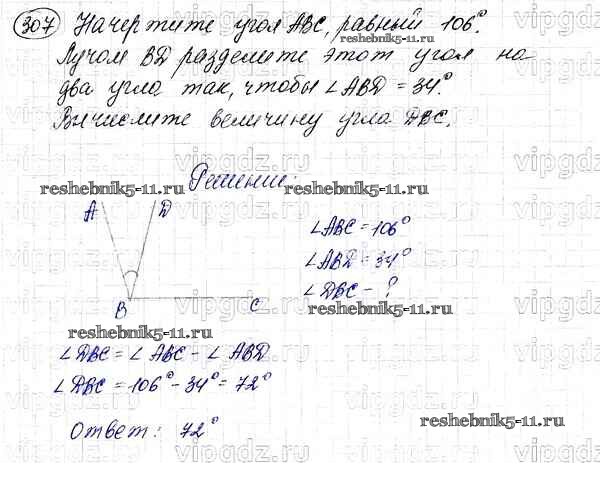 307 Начертите угол ABC, равный 106°.
reshebnik5-11.ru
Лучом BD разделите этот угол на
два угла так, чтобы ∠ABD = 34°.
Вычислите величину угла DBC.
vipgdz.ru vipgdz.ru vipgdz.ru
Решение:
reshebnik5-11.ru reshebnik5-11.ru
A D
∠ABC = 106°
∠ABD = 34°
∠DBC - ?
B C
reshebnik5-11.ru
reshebnik5-11.ru
∠DBC = ∠ABC - ∠ABD
∠DBC = 106° - 34° = 72°
Ответ: 72°
reshebnik5-11.ru
vipgdz.ru vipgdz.ru vipgdz.ru